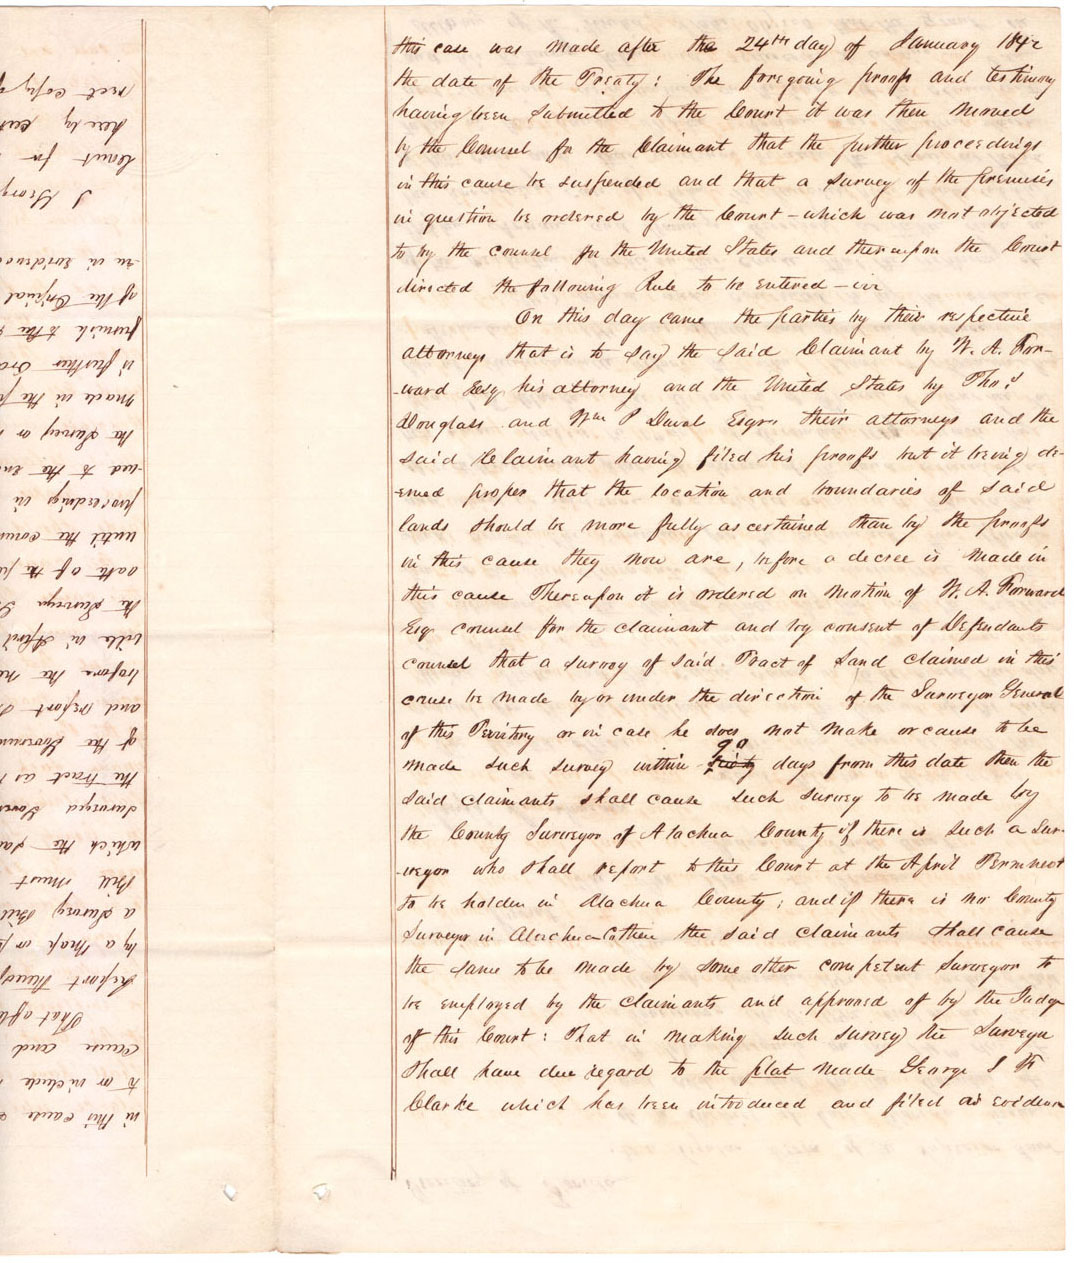 this case was made after the 24th day of January 184
the date of the Treaty: The foregoing proofs and testimony
having been submitted to the Court it was then moved
by the Counsel for the Claimant that the further proceedings
in this cause be suspended and that a survey of the premises
in question be ordered by the Court - which was not objected
to by the counsel for the United States and thereupon the Court
directed the following Rule to be entered -
On this day came the parties by their respective
attorneys that is to say the said Claimant by W. A. For-
-ward Esq his attorney and the United States by Thos
Douglass and Wm P Duval Esqrs their attorneys and the
said Claimant having filed his proofs but it being de-
-emed proper that the location and boundaries of said
lands should be more fully ascertained than by the proofs
in this cause they now are, before a decree is made in
this cause Thereupon it is ordered on motion of W. A. Forward
Esq counsel for the claimant and by consent of Defendants
counsel that a survey of said Tract of Land claimed in this
cause be made by or under the direction of the Surveyor General
of this Territory or in case he does not make or cause to be
made such survey within 90 days from this date then the
said claimants shall cause such survey to be made by
the County Surveyor of Alachua County if there is such a Sur-
-veyor who shall report to this Court at the April Term next
to be holden in Alachua County; and if there is no County
Surveyor in Alachua Co then the said claimants shall cause
the same to be made by some other competent surveyor to
be employed by the claimants and approved of by the Judge
of this Court: That in making such survey the Surveyor
shall have due regard to the plat made George J F
Clarke which has been introduced and filed as evidence
in this cause
to or include
cause and
That
Report
by a Map or
a Survey
Bill must
which the
surveyed
the tract as
of the
and report
before the
in April
the Surveyor
oath of the
until the
proceedings in
-ued to the
the Survey or
made in the
if further
furnish to the
of the Original
-ce in
I
Court for
here by
rect copy